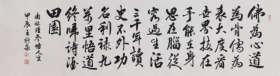 佛為心道
為骨儒為
表大度看
世界技在
手能在身
思在腦從
容過生活
三千年讀
史不外功
名利祿九
萬里悟道
終歸詩酒
田園
甲辰